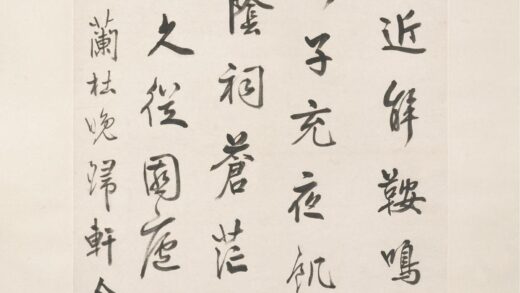 近解鞍鳴
子充夜飢
陰祠蒼茫
久從園廬
蘭杜晚歸軒